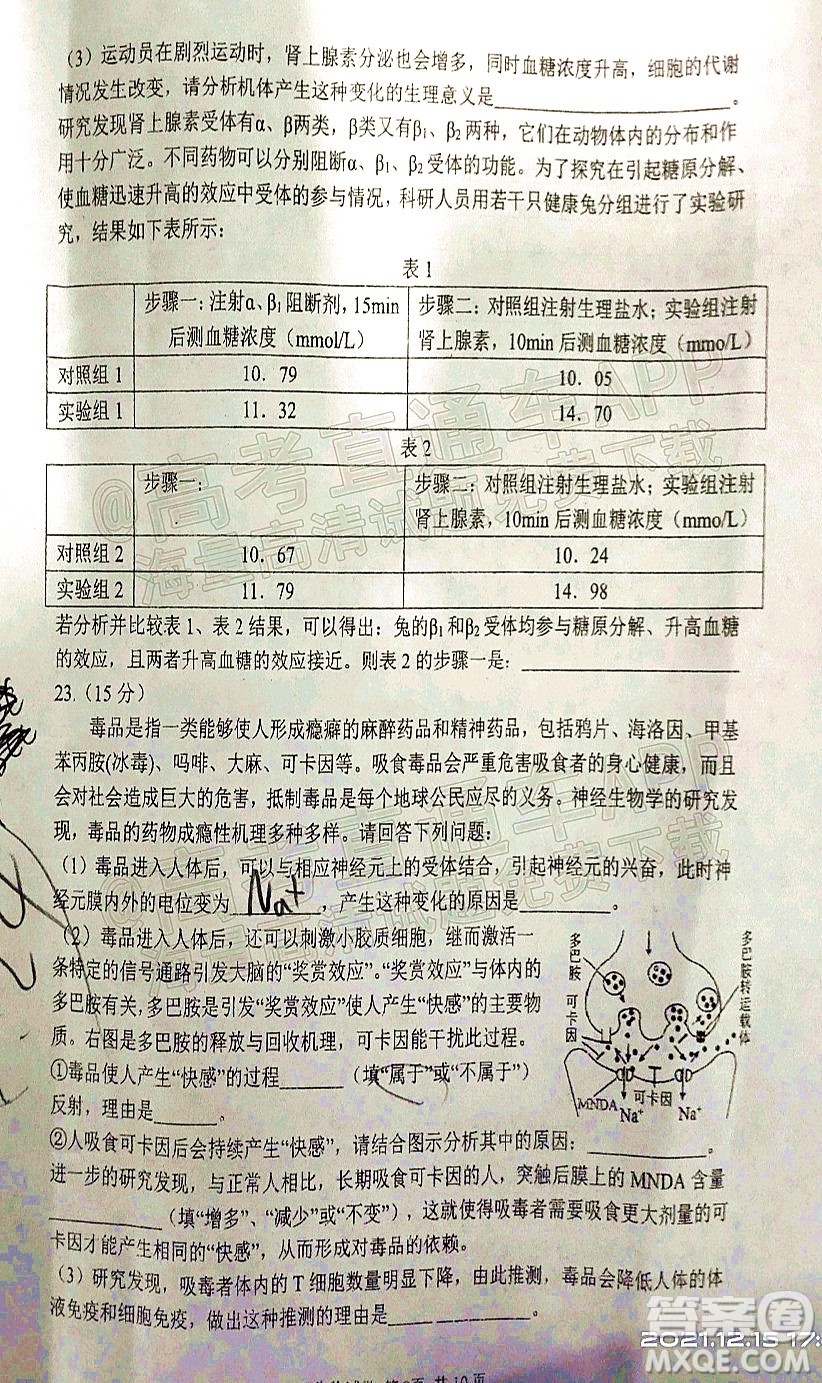 （3）运动员在剧烈运动时，肾上腺素分泌也会增多，同时血糖浓度升高，细胞的代谢
情况发生改变，请分析机体产生这种变化的生理意义是____________________。
研究发现肾上腺素受体有α、β两类，β类又有β₁、β₂两种，它们在动物体内的分布和作
用十分广泛。不同药物可以分别阻断α、β₁、β₂受体的功能。为了探究在引起糖原分解、
使血糖迅速升高的效应中受体的参与情况，科研人员用若干只健康兔分组进行了实验研
究，结果如下表所示：
表1
步骤一：注射α、β₁阻断剂，15min 步骤二：对照组注射生理盐水；实验组注射
后测血糖浓度（mmol/L） 肾上腺素，10min后测血糖浓度（mmo/L）
对照组1 10．79 10．05
实验组1 11．32 14．70
表2
步骤一： 步骤二：对照组注射生理盐水；实验组注射
肾上腺素，10min后测血糖浓度（mmo/L）
对照组2 10．67 10．24
实验组2 11．79 14．98
若分析并比较表1、表2结果，可以得出：兔的β₁和β₂受体均参与糖原分解、升高血糖
的效应，且两者升高血糖的效应接近。则表2的步骤一是：____________________
23.（15分）
毒品是指一类能够使人形成瘾癖的麻醉药品和精神药品，包括鸦片、海洛因、甲基
苯丙胺(冰毒)、吗啡、大麻、可卡因等。吸食毒品会严重危害吸食者的身心健康，而且
会对社会造成巨大的危害，抵制毒品是每个地球公民应尽的义务。神经生物学的研究发
现，毒品的药物成瘾性机理多种多样。请回答下列问题：
（1）毒品进入人体后，可以与相应神经元上的受体结合，引起神经元的兴奋，此时神
经元膜内外的电位变为Na⁺，产生这种变化的原因是__________。
（2）毒品进入人体后，还可以刺激小胶质细胞，继而激活一
条特定的信号通路引发大脑的“奖赏效应”。“奖赏效应”与体内的
多巴胺有关，多巴胺是引发“奖赏效应”使人产生“快感”的主要物
质。右图是多巴胺的释放与回收机理，可卡因能干扰此过程。
①毒品使人产生“快感”的过程_______（填“属于”或“不属于”）
反射，理由是_______。
多巴胺
可卡因
多巴胺转运载体
MNDA
可卡因
Na⁺
Na⁺
②人吸食可卡因后会持续产生“快感”，请结合图示分析其中的原因：__________。
进一步的研究发现，与正常人相比，长期吸食可卡因的人，突触后膜上的MNDA含量
__________（填“增多”、“减少”或“不变”），这就使得吸毒者需要吸食更大剂量的可
卡因才能产生相同的“快感”，从而形成对毒品的依赖。
（3）研究发现，吸毒者体内的T细胞数量明显下降，由此推测，毒品会降低人体的体
液免疫和细胞免疫，做出这种推测的理由是__________。
共10页
@高考直通车APP
海量高清试题免费下载
@高考直通车APP
海量高清试题免费下载
答案圈
MXQE.COM
2021.12.15 17: